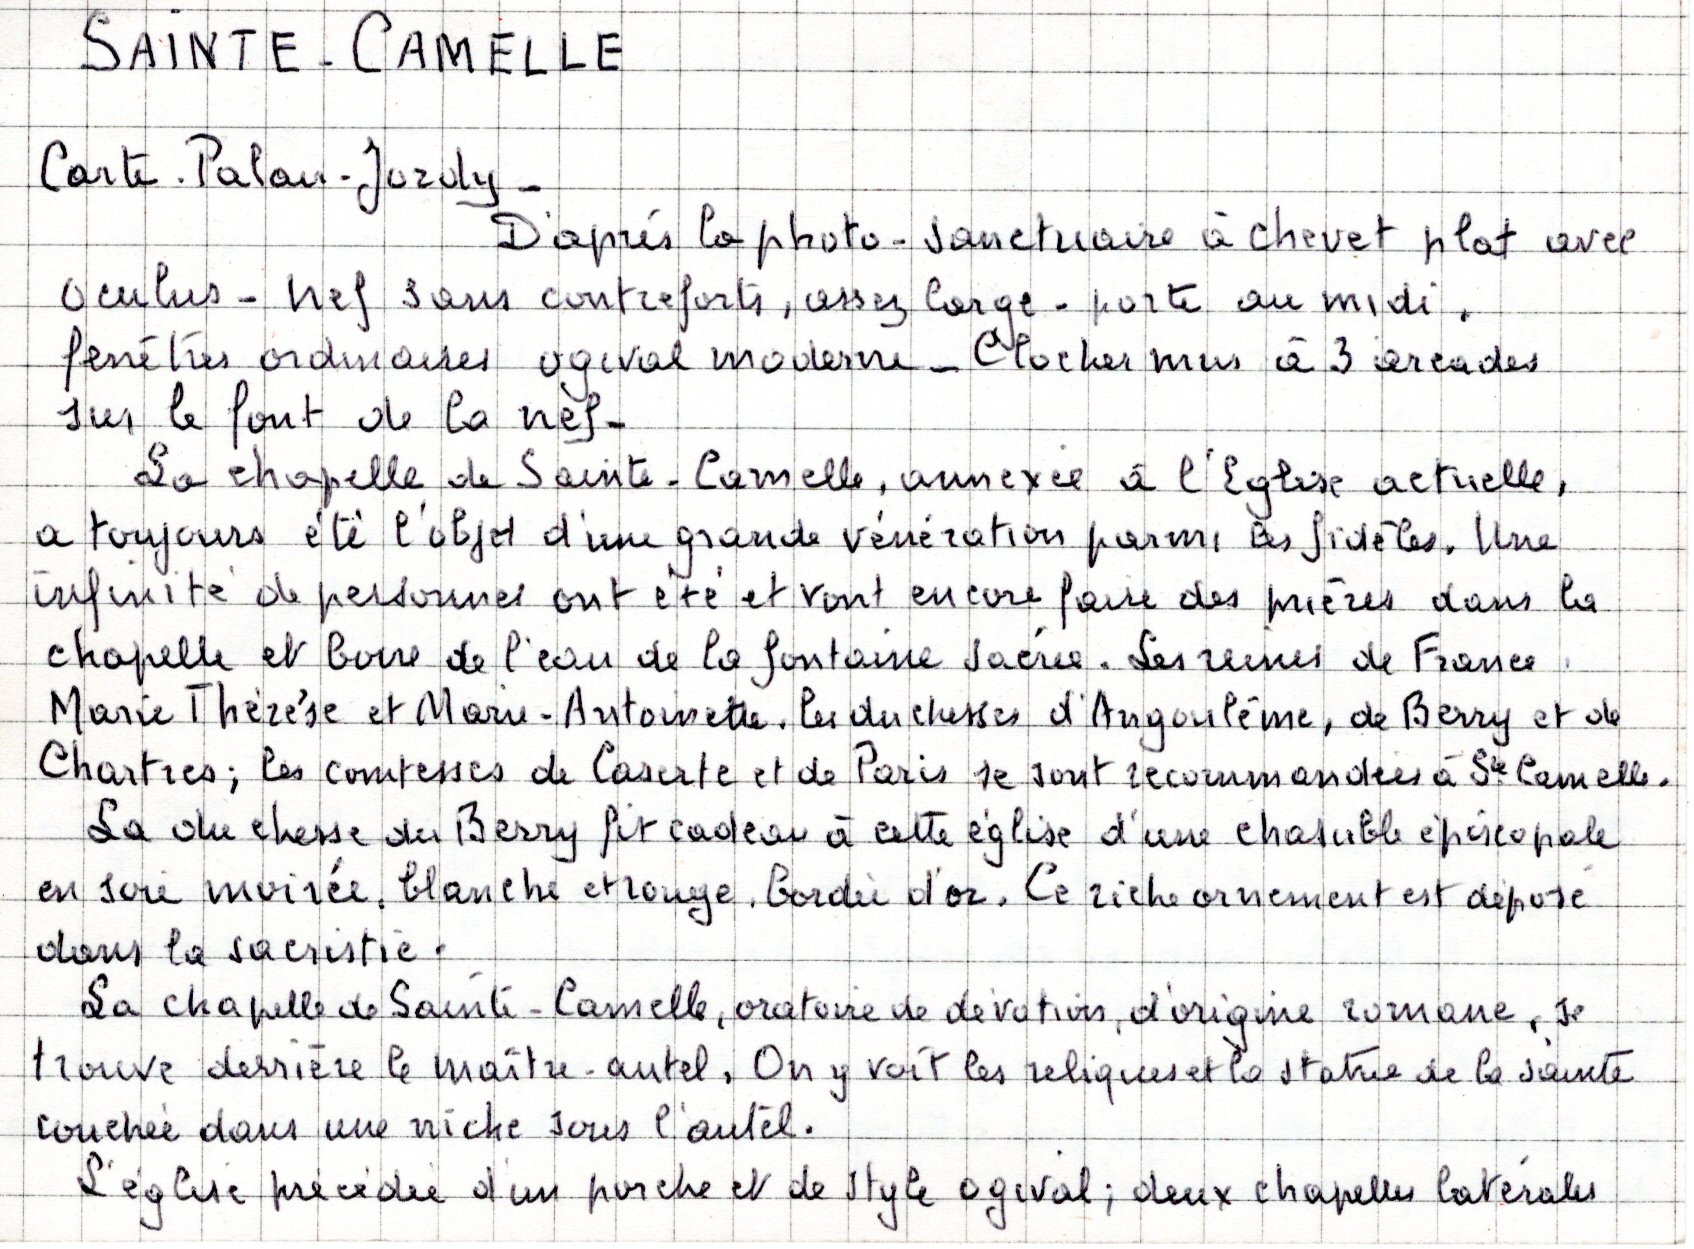 SAINTE-CAMELLE
Carte. Palau-Jordy-
D'après la photo - sanctuaire à chevet plat avec
oculus - nef sans contreforts, assez large - porte au midi.
fenêtres ordinaires ogival moderne - Clocher mur à 3 arcades
sur le font de la nef-
La chapelle de Sainte-Camelle, annexée à l'Eglise actuelle,
a toujours été l'objet d'une grande vénération parmi les fidèles. Une
infinité de personnes ont été et vont encore faire des prières dans la
chapelle et boire de l'eau de la fontaine sacrée. Les reines de France
Marie Thérèse et Marie-Antoinette. les duchesses d'Angoulême, de Berry et de
Chartres; les comtesses de Caserte et de Paris se sont recommandées à Ste Camelle.
La duchesse du Berry fit cadeau à cette église d'une chasuble épiscopale
en soie moirée, blanche et rouge, bordée d'or. Ce riche ornement est déposé
dans la sacristie.
La chapelle de Sainte-Camelle, oratoire de dévotion, d'origine romane, se
trouve derrière le maître-autel. On y voit les reliques et la statue de la sainte
couchée dans une niche sous l'autel.
L'église précédée d'un porche et de style ogival; deux chapelles latérales